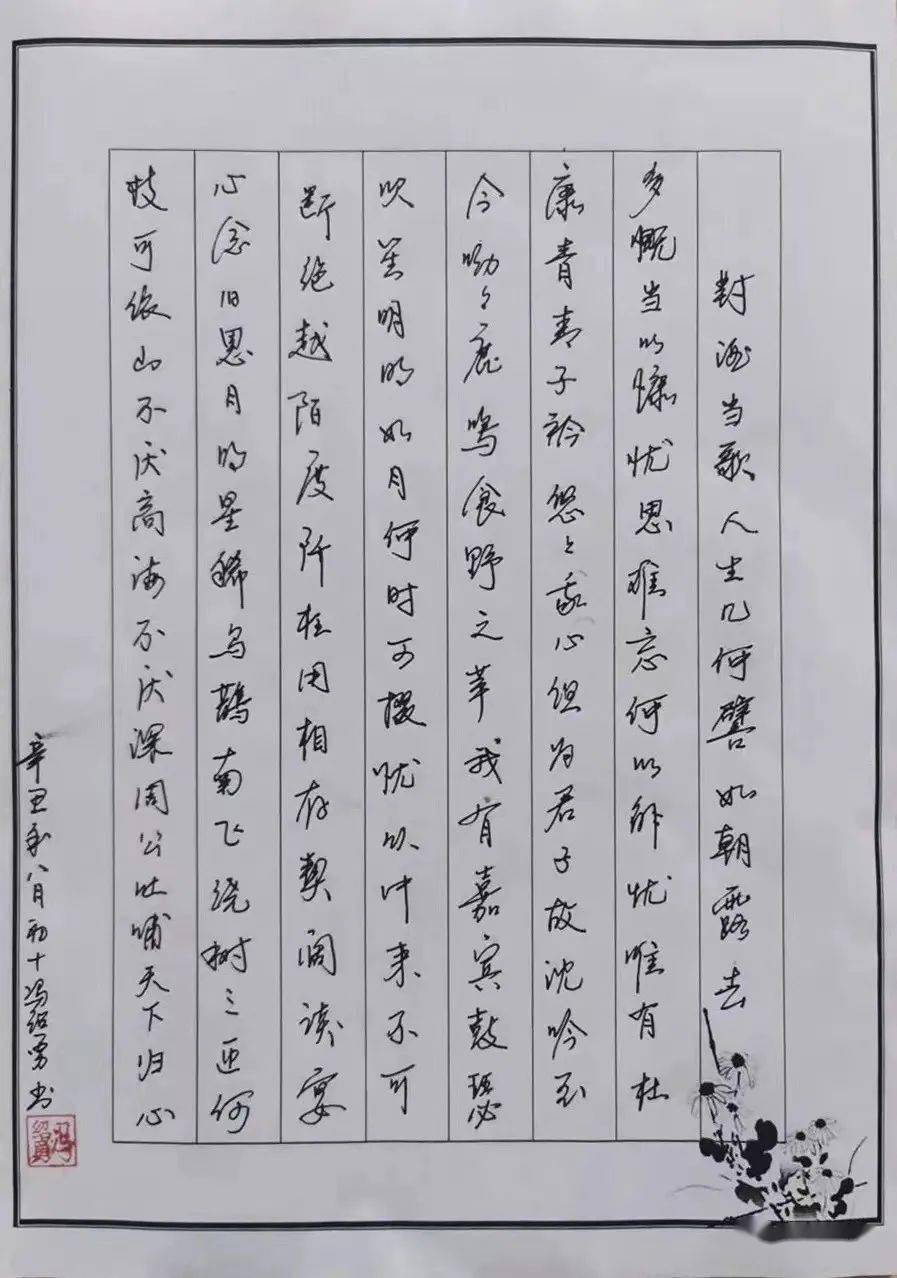 對酒当歌人生几何譬如朝露去
多慨当以慷忧思难忘何以解忧唯有杜
康青青子衿悠々我心但为君子故沈吟至
今呦々鹿鸣食野之苹我有嘉宾鼓瑟
吹笙明明如月何时可掇忧从中来不可
断绝越陌度阡枉用相存契阔谈宴
心念旧恩月明星稀乌鹊南飞绕树三匝何
枝可依山不厌高海不厌深周公吐哺天下归心
辛丑秋八月初十冯绍勇书
冯绍勇